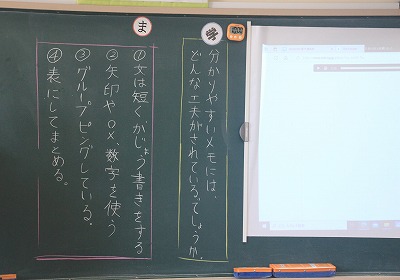 学
分かりやすいメモには、
どんな工夫がされているでしょうか。
ま
①文は短くかじょう書きをする
②矢印や○×、数字を使う
③グループピングしている。
④表にしてまとめる。